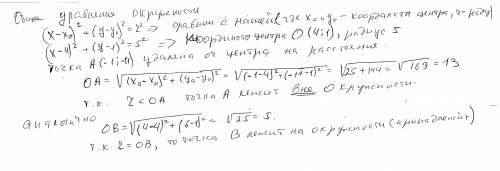 Общее уравнение окружности
(x-x₀)² + (y-y₀)² = r² => сравним с нашей (где x₀ и y₀ - координата центра, r - радиус)
(x-4)² + (y-1)² = 5² => координаты центра O (4;1), радиус 5
Точка A (-1;-11) удалена от центра на расстояние
OA = √(x₀-x₀)² + (y₀-y₀)² = √(-1-4)² + (-11-1)² = √25+144 = √169 = 13
т.к. r < OA точка A лежит вне окружности.
аналогично
OB = √(4-4)² + (6-1)² = √25 = 5.
т.к r = OB, то точка B лежит на окружности (принадлежит)